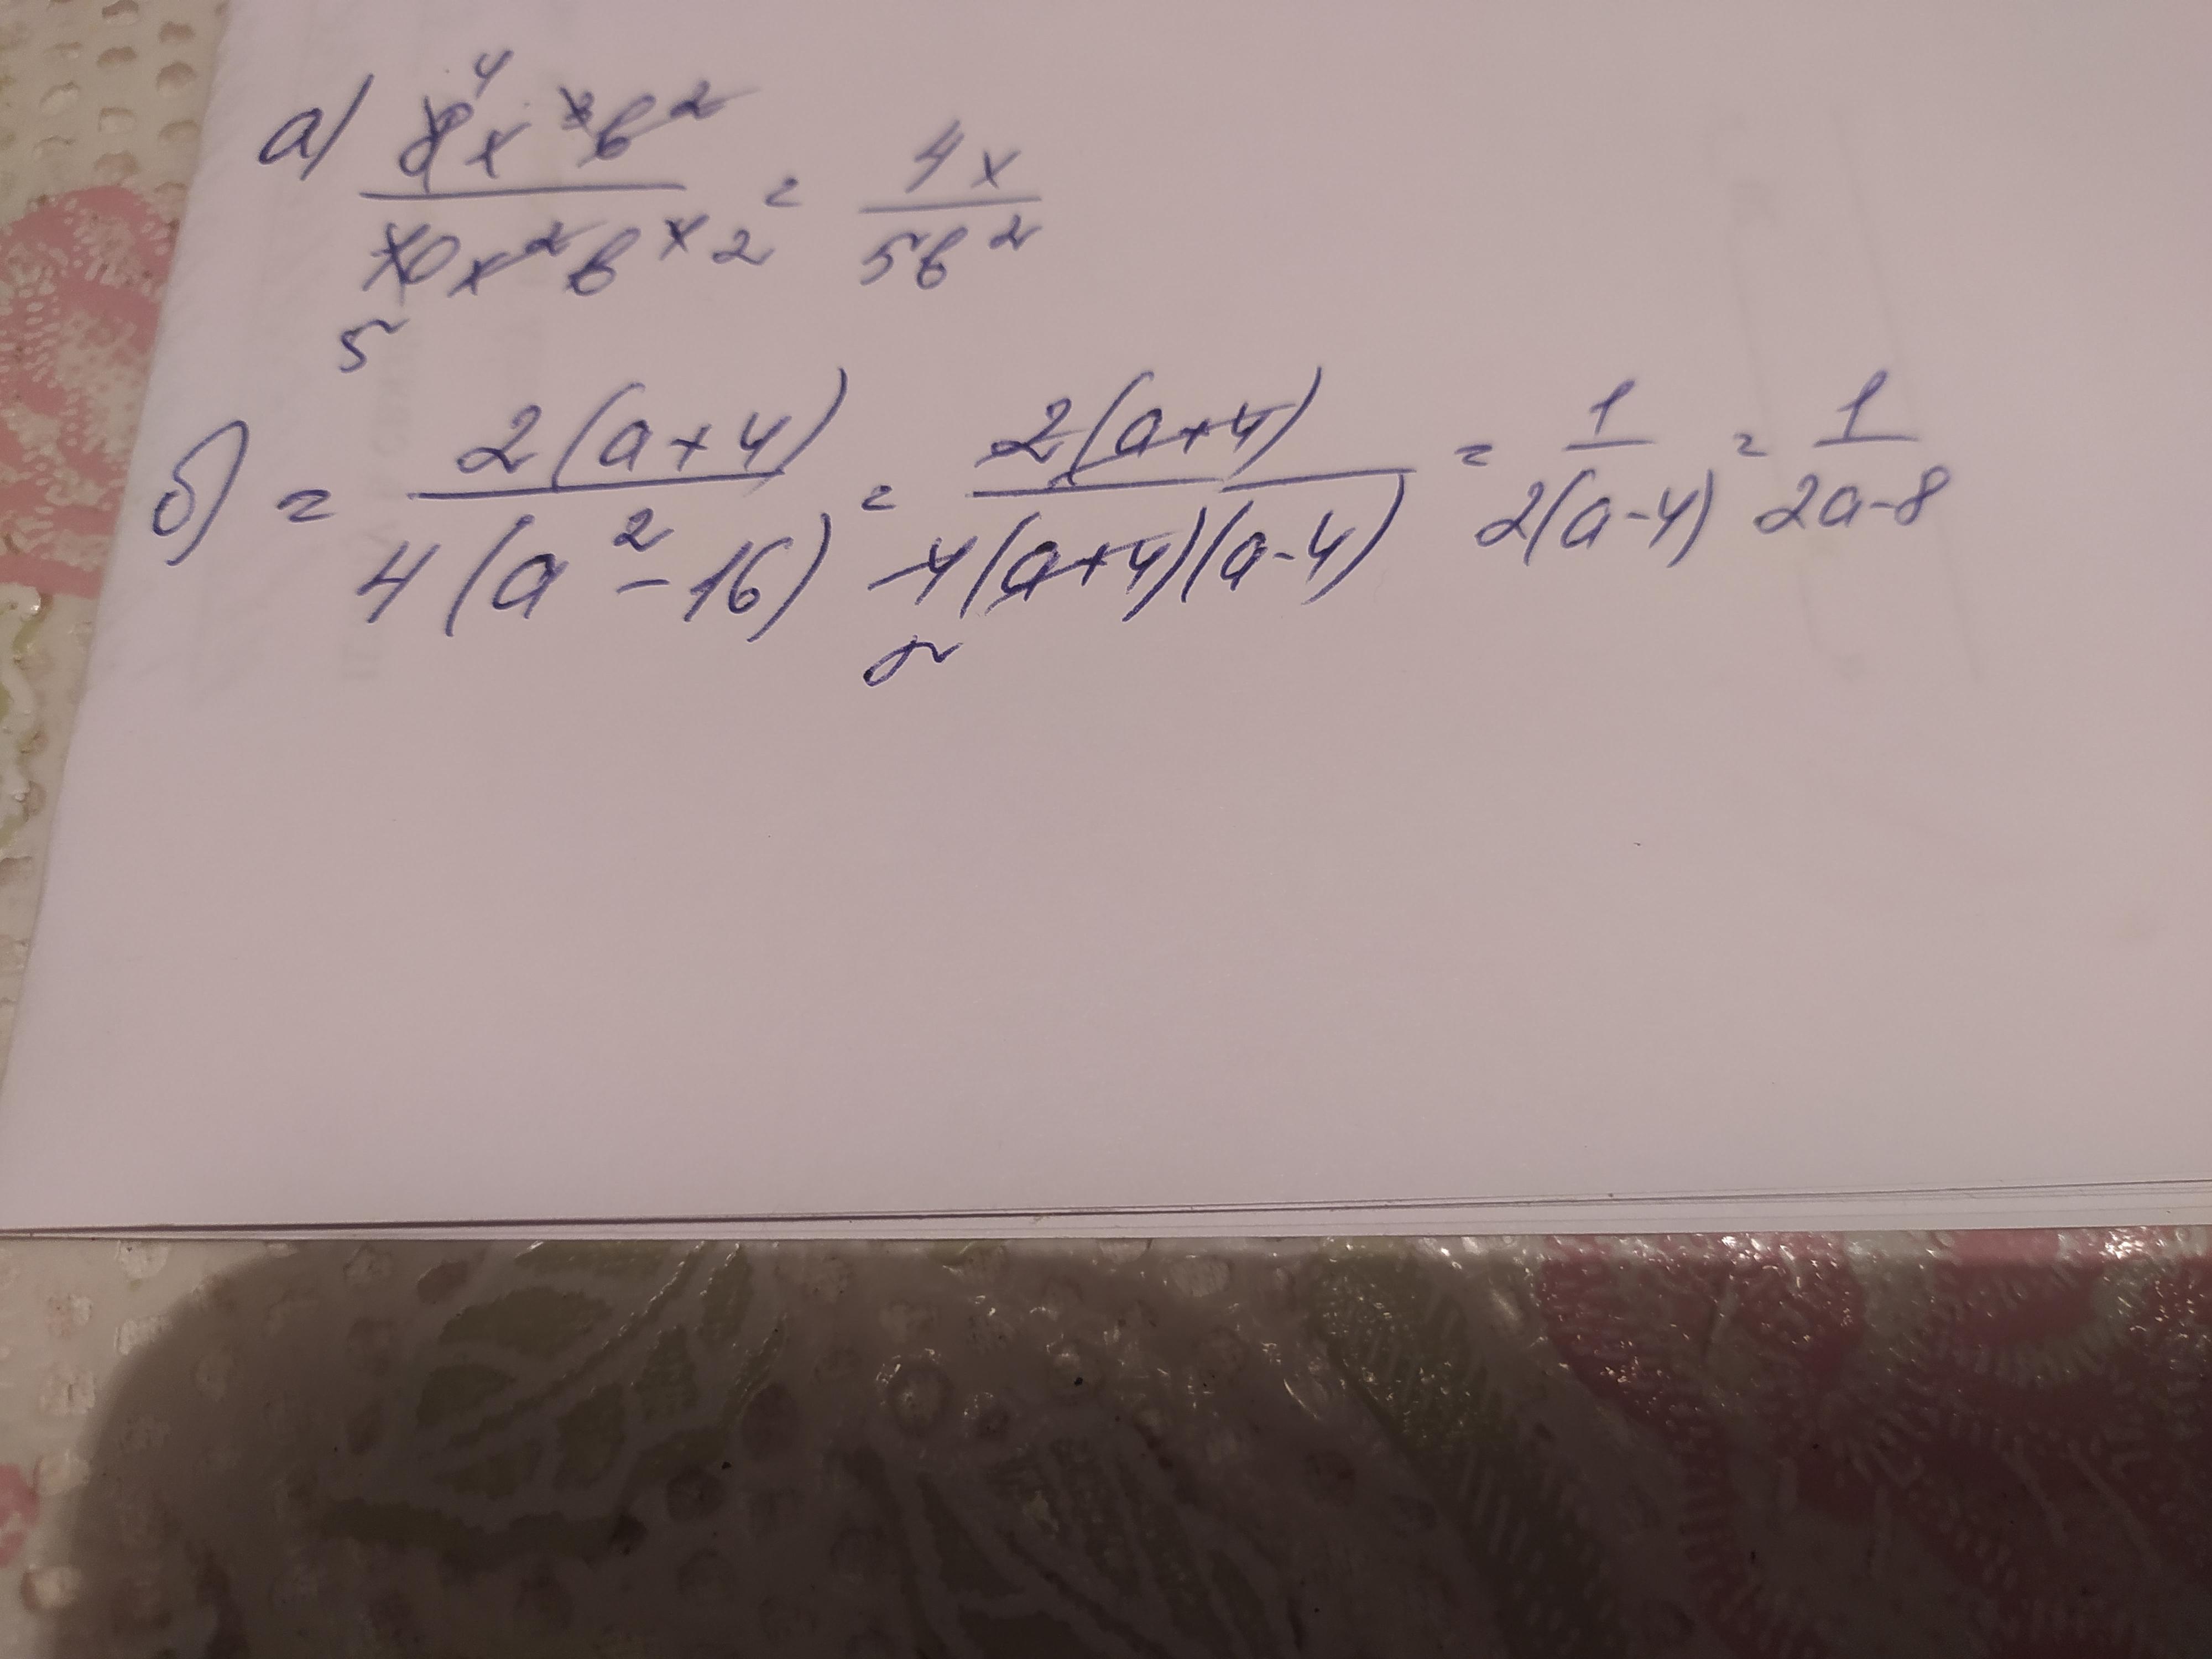 а) 8⁴x³b² / 10x²b⁴ 2 = 4x / 5b²
5
б) = 2(a+4) / 4(a²-16) = 2(a+4) / 4(a+4)(a-4) = 1 / 2(a-4) = 1 / 2a-8
2